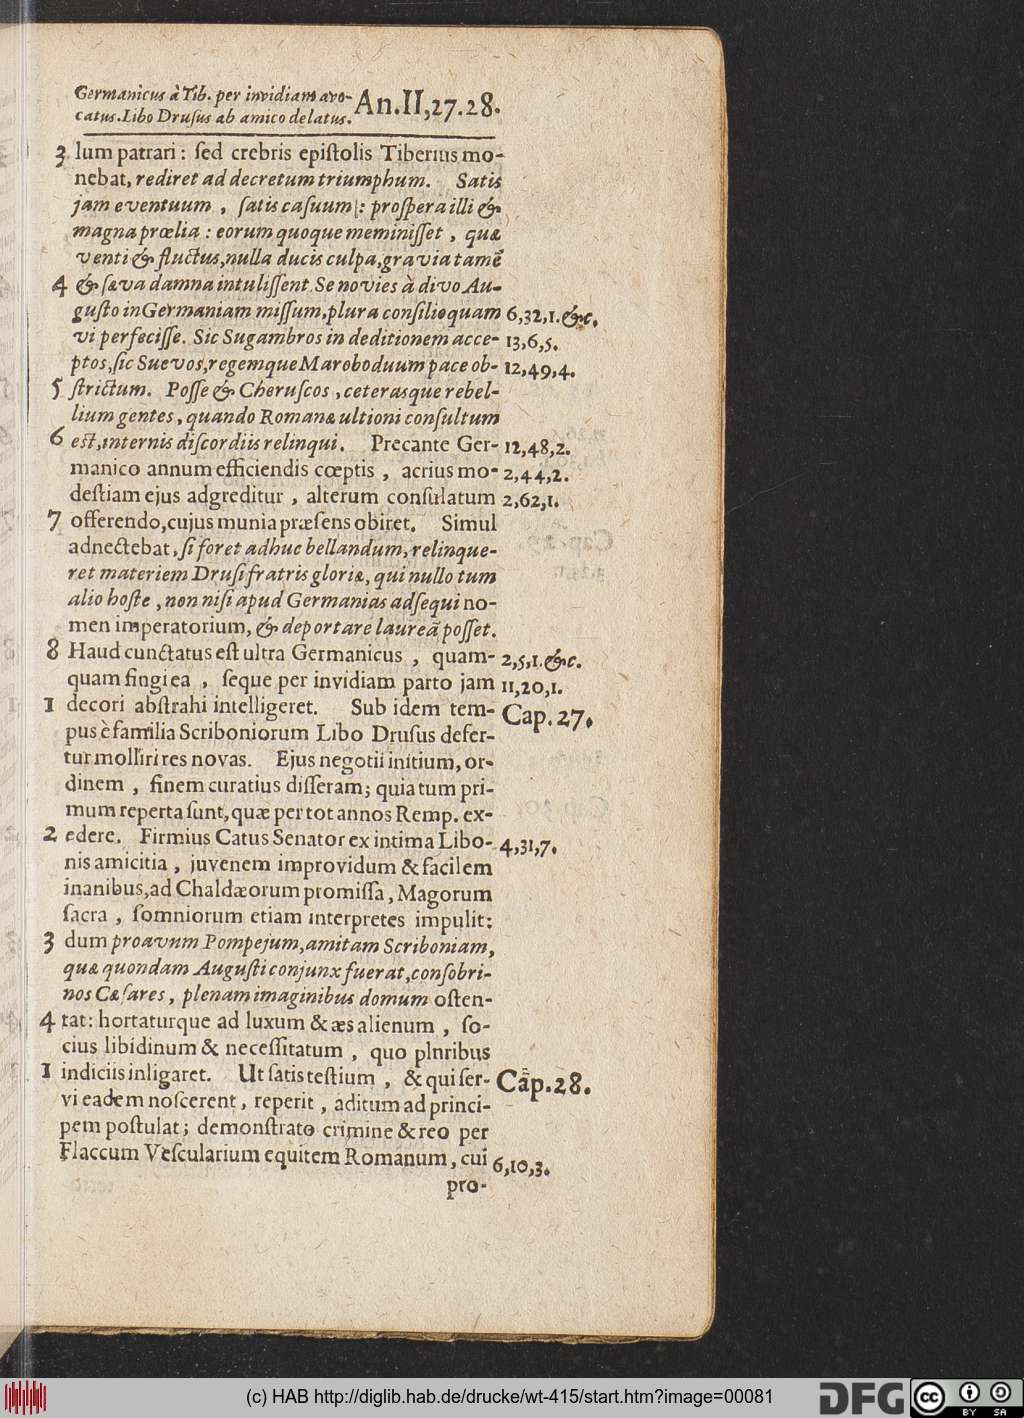 Germanicus à Tib. per invidiam avo-
catus. Libo Druſus ab amico delatus. An.II,27.28.
3 lum patrari: ſed crebris epiſtolis Tiberius mo-
nebat, rediret ad decretum triumphum. Satis
jam eventuum, ſatis caſuum: proſpera illi &
magna prœlia: eorum quoque meminiſſet, quæ
venti & fluctus, nulla ducis culpa, gravia tamẽ
4 & ſæva damna intuliſſent. Se novies à divo Au-
guſto in Germaniam miſſum, plura conſilio quam 6,32,1.&c.
vi perfeciſſe. Sic Sugambros in deditionem acce- 13,6,5.
ptos, ſic Suevos, regemque Maroboduum pace ob- 12,49,4.
5 ſtrictum. Poſſe & Cheruſcos, ceterasque rebel-
lium gentes, quando Romanæ ultioni conſultum
6 eſt, internis diſcordiis relinqui. Precante Ger- 12,48,2.
manico annum efficiendis cœptis, acrius mo- 2,44,2.
deſtiam ejus adgreditur, alterum conſulatum 2,62,1.
7 offerendo, cujus munia præſens obiret. Simul
adnectebat, ſi foret adhuc bellandum, relinque-
ret materiem Druſi fratris gloriæ, qui nullo tum
alio hoſte, non niſi apud Germanias adſequi no-
men imperatorium, & deportare laureã poſſet.
8 Haud cunctatus eſt ultra Germanicus, quam- 2,5,1.&c.
quam fingi ea, ſeque per invidiam parto jam 11,20,1.
1 decori abſtrahi intelligeret. Sub idem tem- Cap.27.
pus è familia Scriboniorum Libo Druſus defer-
tur moliri res novas. Ejus negotii initium, or-
dinem, finem curatius diſſeram; quia tum pri-
mum reperta ſunt, quæ per tot annos Remp. ex-
2 edere. Firmius Catus Senator ex intima Libo- 4,31,7.
nis amicitia, juvenem improvidum & facilem
inanibus, ad Chaldæorum promiſſa, Magorum
ſacra, ſomniorum etiam interpretes impulit:
3 dum proavnm Pompejum, amitam Scriboniam,
quæ quondam Auguſti conjunx fuerat, conſobri-
nos Cæſares, plenam imaginibus domum oſten-
4 tat: hortaturque ad luxum & æs alienum, ſo-
cius libidinum & neceſſitatum, quo plnribus
1 indiciis inligaret. Ut ſatis teſtium, & qui ſer- Cap.28.
vi eadem noſcerent, reperit, aditum ad princi-
pem poſtulat; demonſtrato crimine & reo per
Flaccum Veſcularium equitem Romanum, cui 6,10,3.
pro-
(c) HAB http://diglib.hab.de/drucke/wt-415/start.htm?image=00081
DFG
cc BY SA